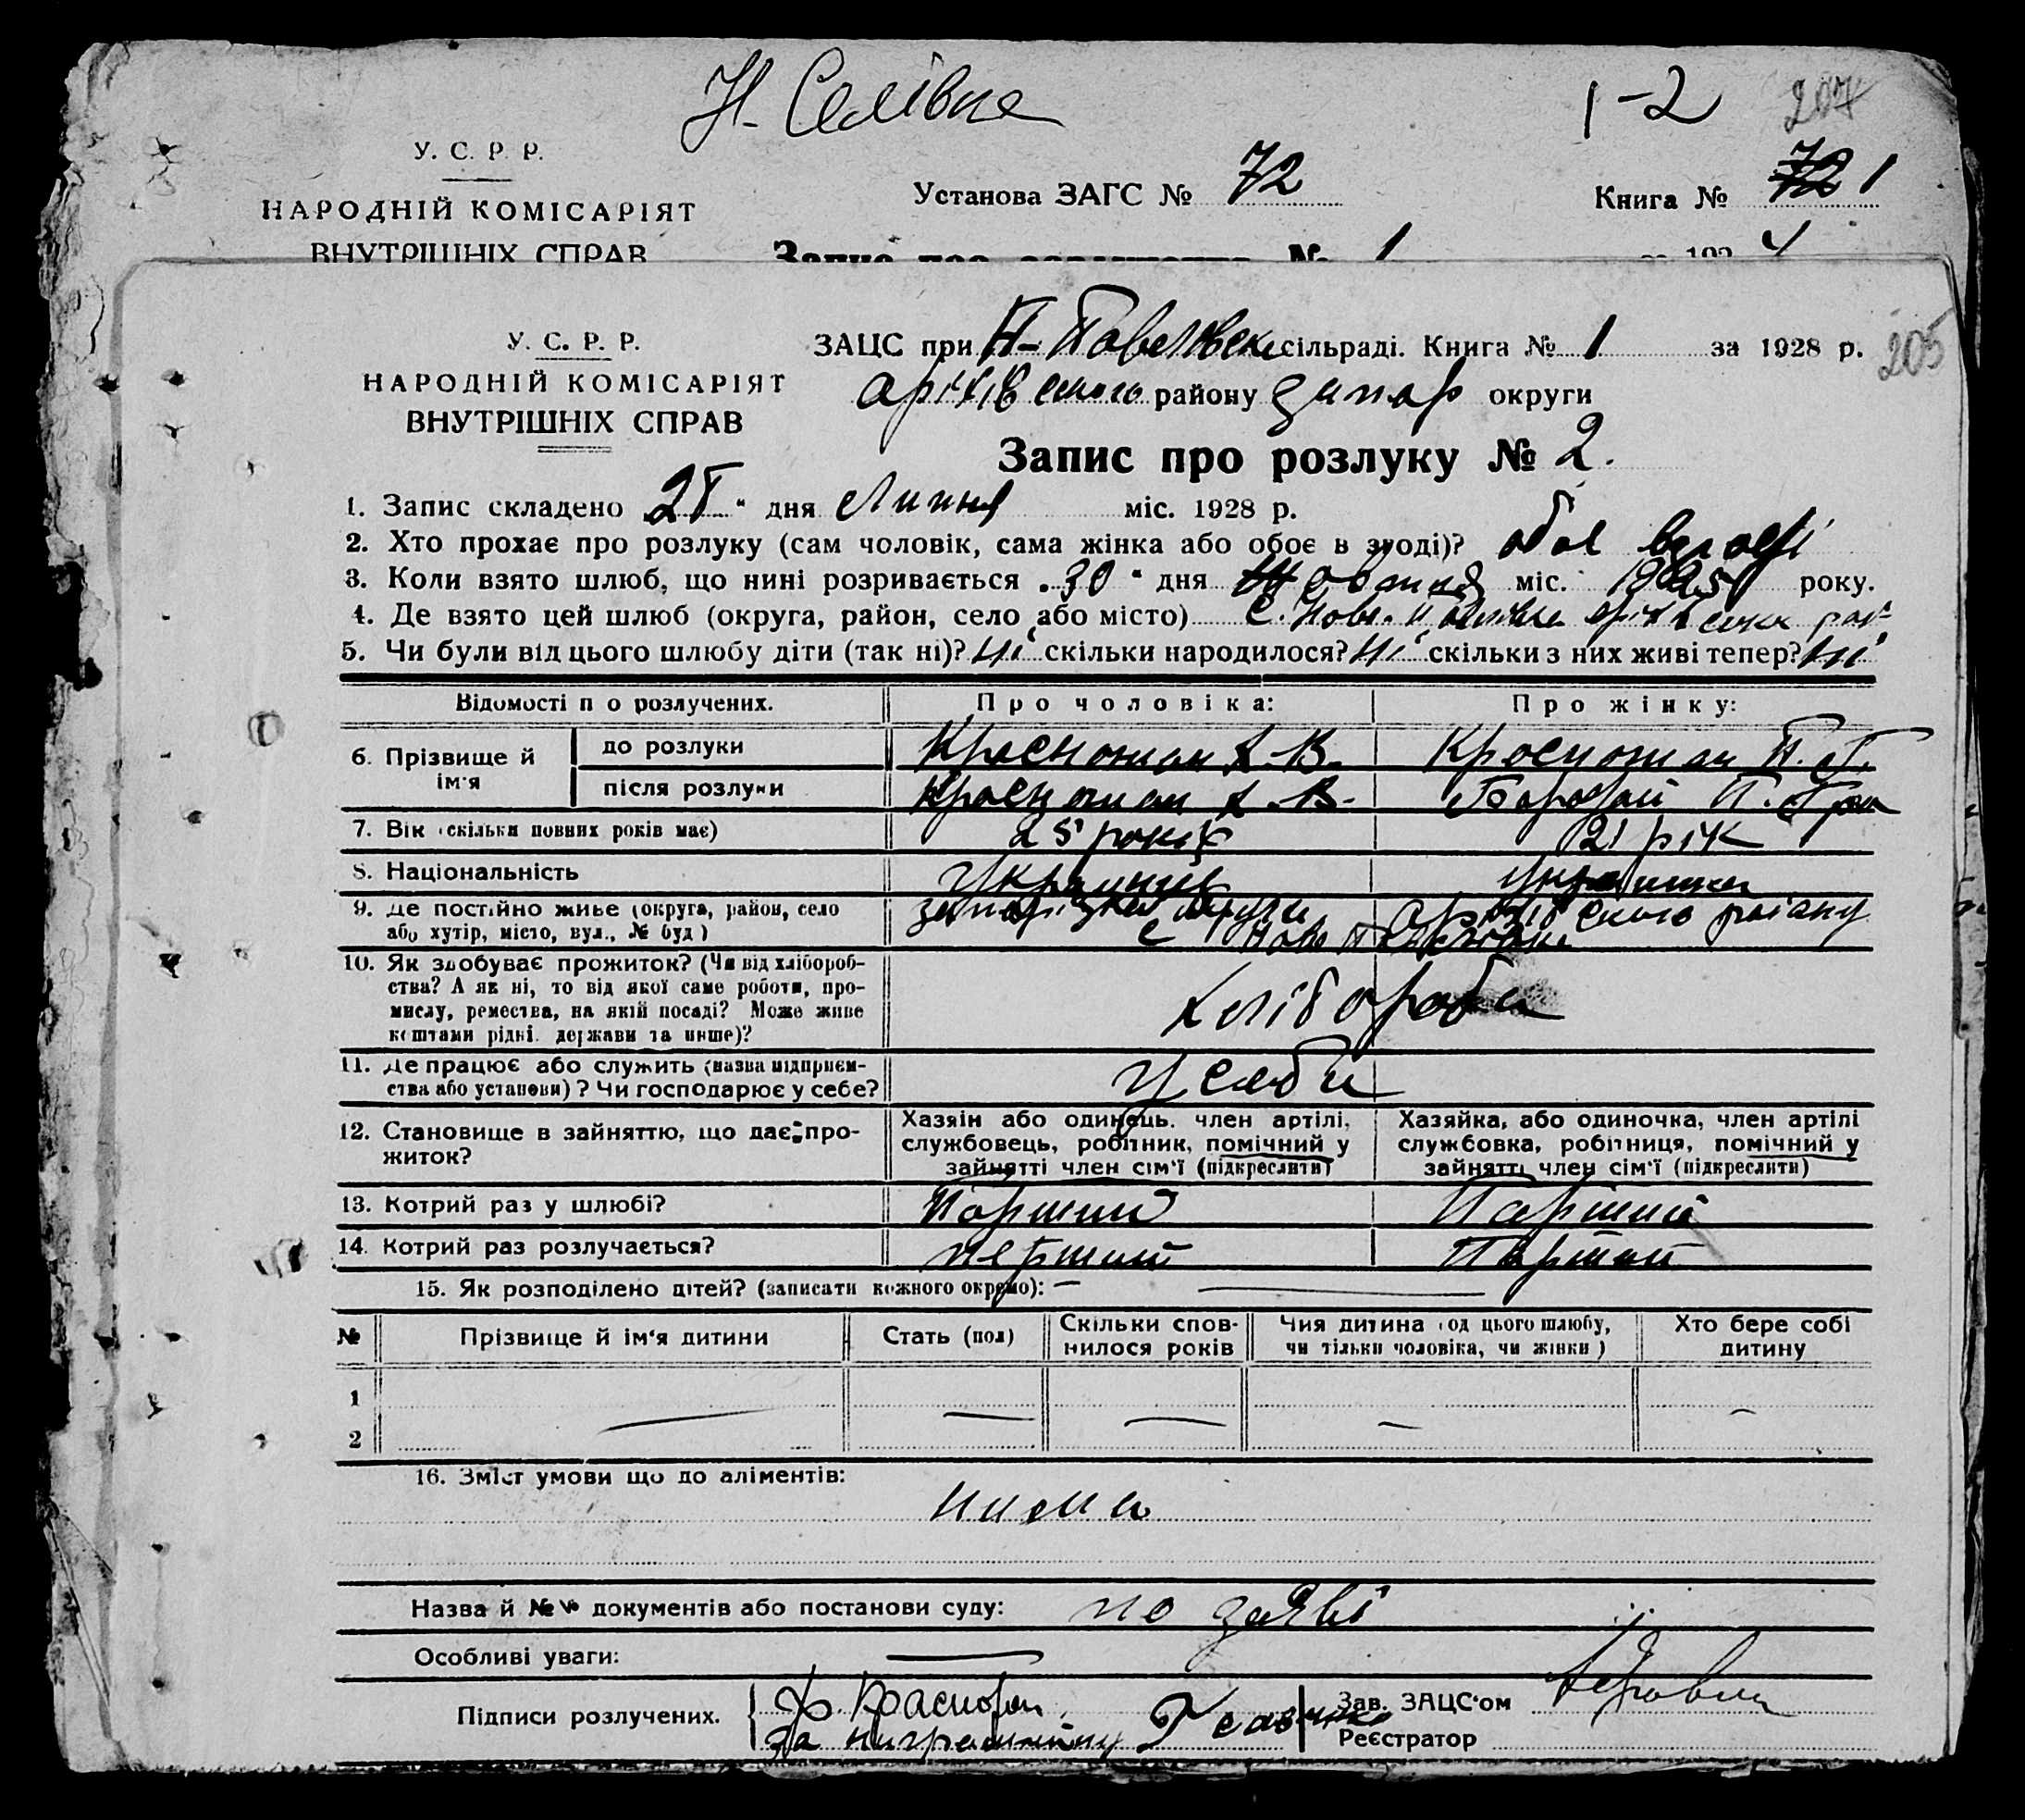 Н. Селівка
1-2
207
У. С. Р. Р.
НАРОДНІЙ КОМІСАРІЯТ
ВНУТРІШНІХ СПРАВ
Установа ЗАГС № 72
Книга № 72 1
Запис про № 1
192 4
205
У. С. Р. Р.
НАРОДНІЙ КОМІСАРІЯТ
ВНУТРІШНІХ СПРАВ
ЗАЦС при Н- сільраді. Книга № 1 за 1928 р.
району запор округи
Запис про розлуку № 2.
1. Запис складено " дня Липня міс. 1928 р.
2. Хто прохає про розлуку (сам чоловік, сама жінка або обоє в згоді)? обоє
3. Коли взято шлюб, що нині розривається 30 " дня Жовтня міс. 1925 року.
4. Де взято цей шлюб (округа, район, село або місто) с. Ново.
5. Чи були від цього шлюбу діти (так ні)? Ні скільки народилося? Ні скільки з них живі тепер? Ні
Відомості по розлучених.
Про чоловіка:
Про жінку:
6. Прізвище й ім'я
до розлуки
Красножан Х. В.
Красножан П. Г.
після розлуки
Красножан Х. В.
П.
7. Вік (скільки повних років має)
25 років
21 рік
8. Національність
Украинец
украинка
9. Де постійно живе (округа, район, село
або хутір, місто, вул., № буд)
округи району
с Ново
10. Як здобуває прожиток? (Чи від хлібороб-
ства? А як ні, то від якої саме роботи, про-
мислу, ремества, на якій посаді? Може живе
коштами рідні. держави та инше)?
хлібороби
11. Де працює або служить (назва підприєм-
ства або установи)? Чи господарює у себе?
у себе
12. Становище в зайняттю, що дає про-
житок?
Хазяїн або одинець, член артілі,
службовець, робітник, помічний у
зайнятті член сім'ї (підкреслити)
Хазяйка, або одиночка, член артілі
службовка, робітниця, помічний у
зайнятті член сім'ї (підкреслити)
13. Котрий раз у шлюбі?
Парший
Парший
14. Котрий раз розлучається?
перший
Парший
15. Як розподілено дітей? (записати кожного окремо): —
№
Прізвище й ім'я дитини
Стать (пол)
Скільки спов-
нилося років
Чия дитина (од цього шлюбу,
чи тільки чоловіка, чи жінки)
Хто бере собі
дитину
1
2
16. Зміст умови що до аліментів:
нима
Назва й №№ документів або постанови суду: по заяві
Особливі уваги: —
Підписи розлучених.
за ниграмотну
Зав. ЗАЦС'ом
Реєстратор